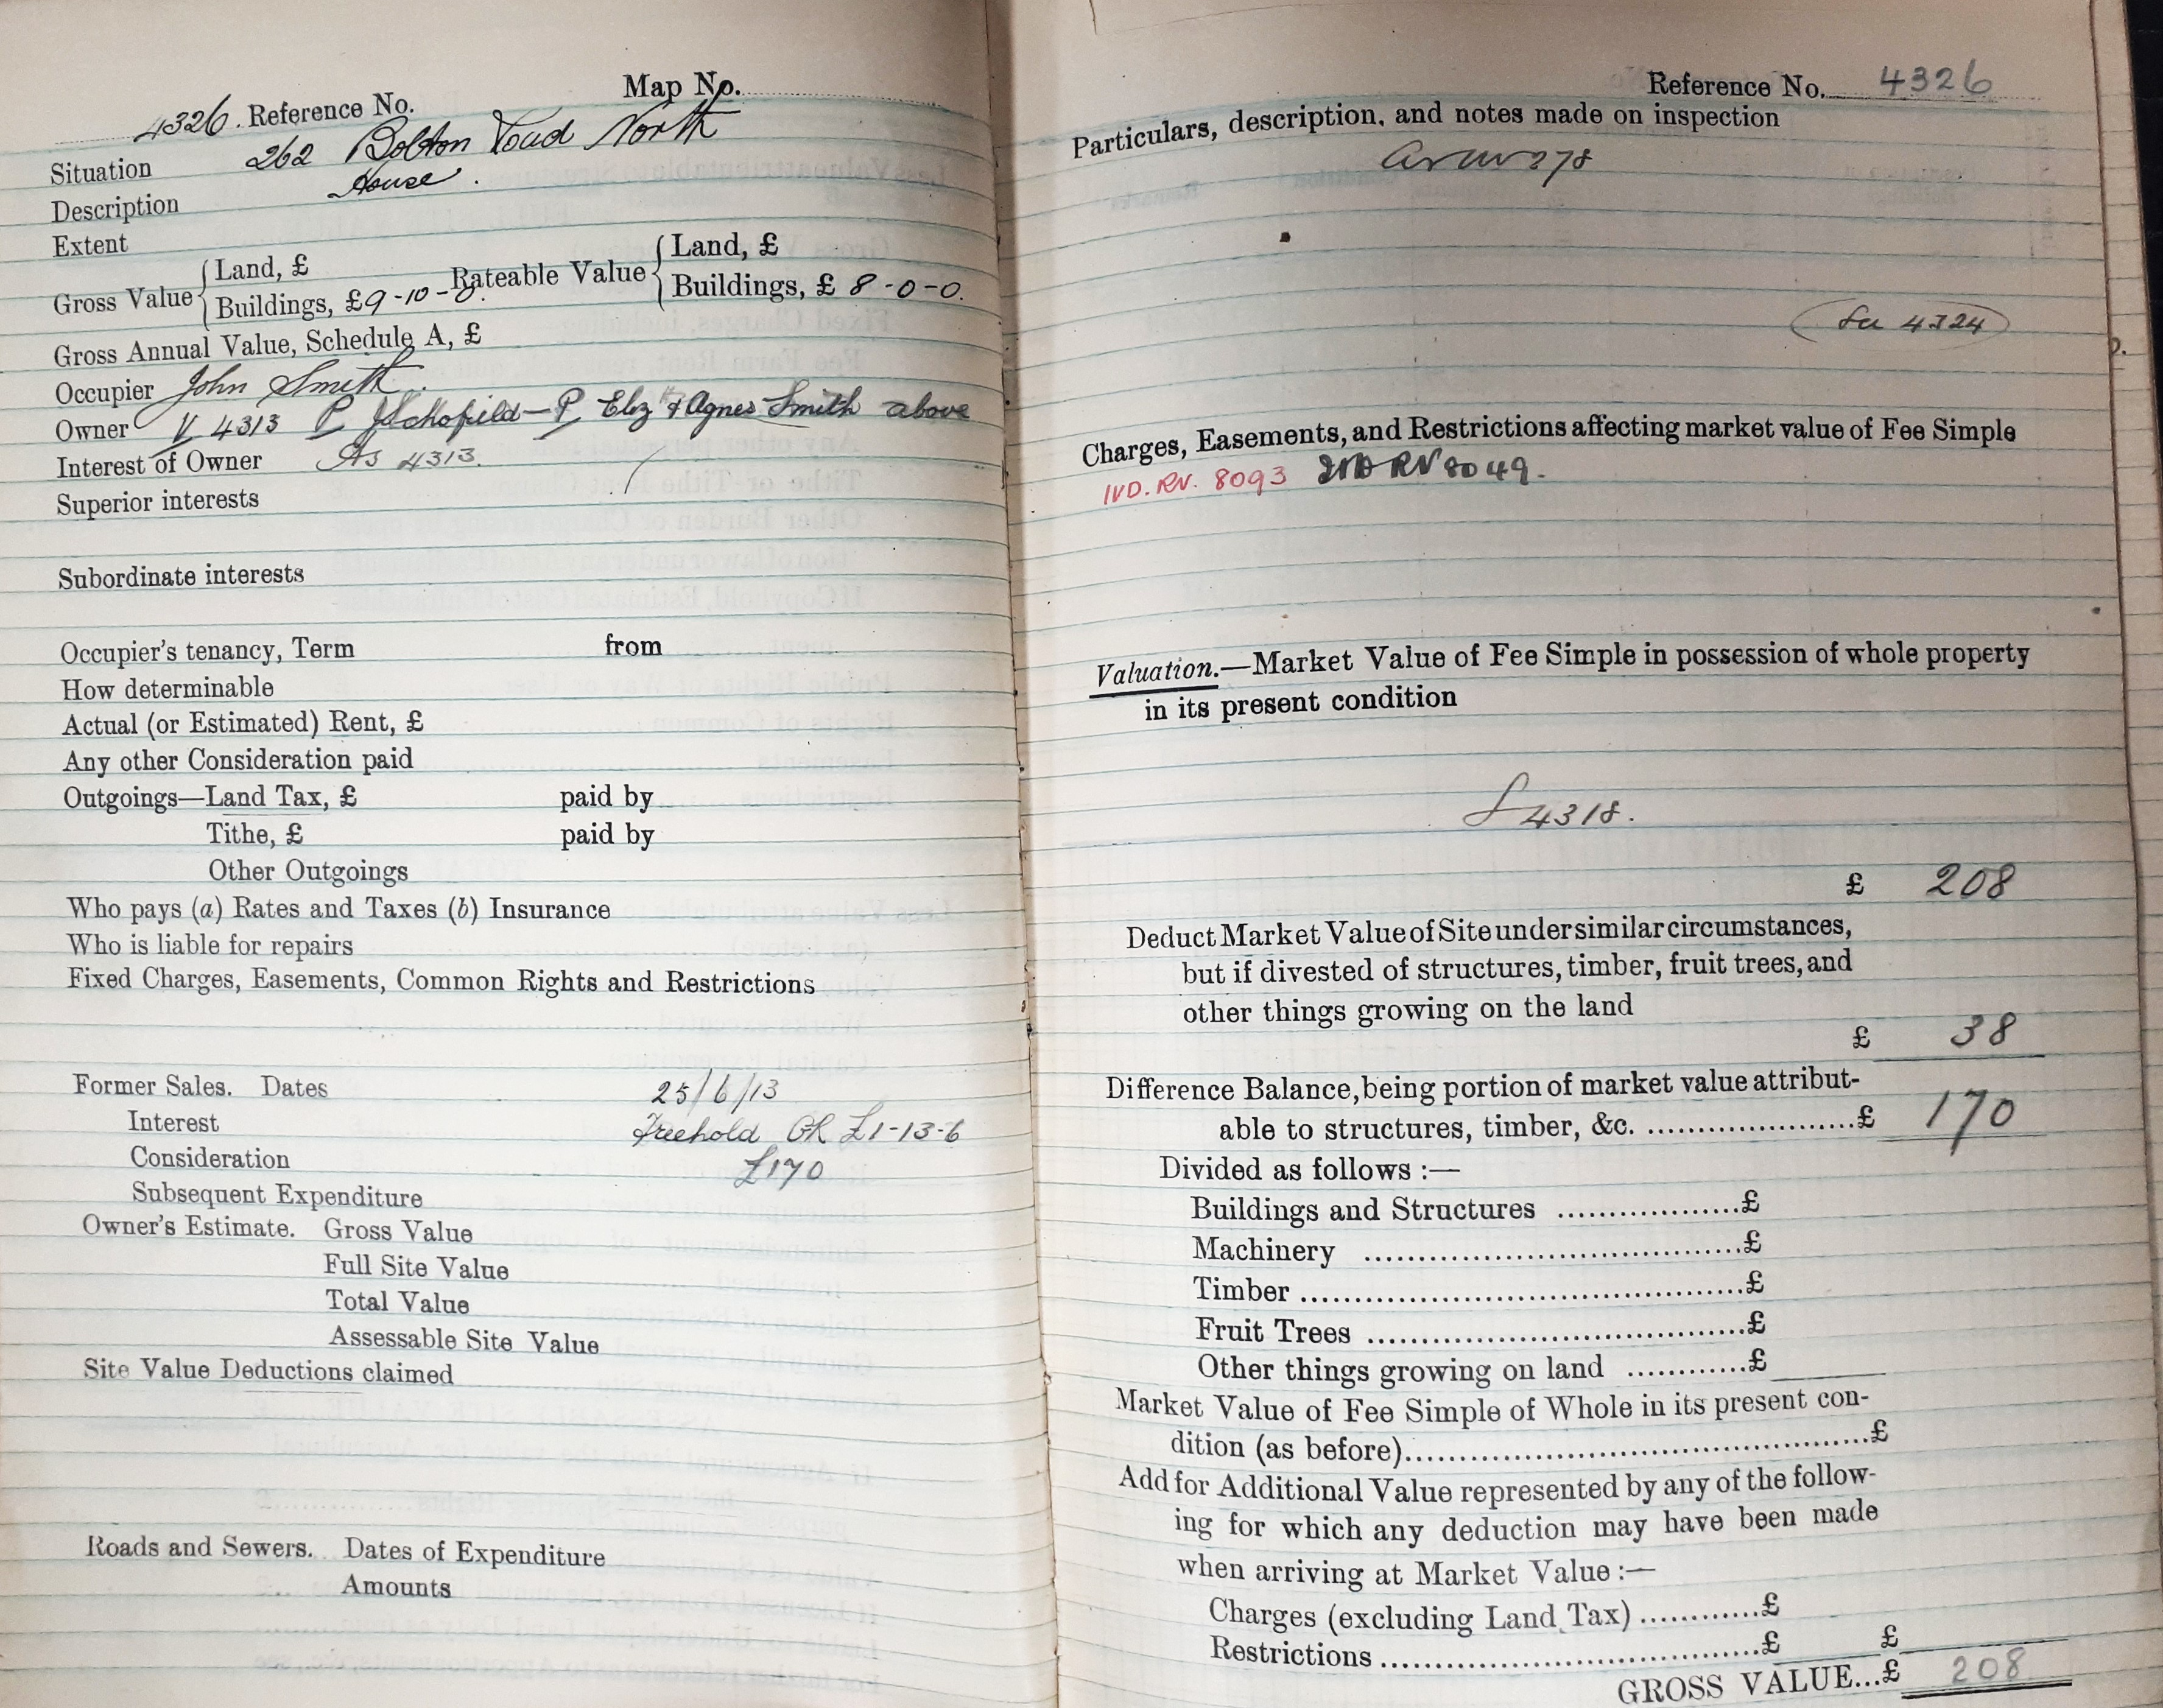 Map No.
4326. Reference No.
Situation 262 Bolton Road North
Description House.
Extent
Gross Value { Land, £
Buildings, £9-10-0. Rateable Value { Land, £
Buildings, £ 8-0-0.
Gross Annual Value, Schedule A, £
Occupier John Smith.
Owner V 4313 P Schofield — P Eliz & Agnes Smith above
Interest of Owner As 4313.
Superior interests
Subordinate interests
Occupier's tenancy, Term from
How determinable
Actual (or Estimated) Rent, £
Any other Consideration paid
Outgoings—Land Tax, £ paid by
Tithe, £ paid by
Other Outgoings
Who pays (a) Rates and Taxes (b) Insurance
Who is liable for repairs
Fixed Charges, Easements, Common Rights and Restrictions
Former Sales. Dates 25/6/13
Interest Freehold GR £1-13-6
Consideration £170
Subsequent Expenditure
Owner's Estimate. Gross Value
Full Site Value
Total Value
Assessable Site Value
Site Value Deductions claimed
Roads and Sewers. Dates of Expenditure
Amounts
Reference No. 4326
Particulars, description, and notes made on inspection
4324
Charges, Easements, and Restrictions affecting market value of Fee Simple
IVD. RV. 8093 IVD RV 8049.
Valuation.—Market Value of Fee Simple in possession of whole property
in its present condition
4318.
£ 208
Deduct Market Value of Site under similar circumstances,
but if divested of structures, timber, fruit trees, and
other things growing on the land
£ 38
Difference Balance, being portion of market value attribut-
able to structures, timber, &c. ....................£ 170
Divided as follows :—
Buildings and Structures ..................£
Machinery .....................................£
Timber ...........................................£
Fruit Trees .....................................£
Other things growing on land ............£
Market Value of Fee Simple of Whole in its present con-
dition (as before)...........................................£
Add for Additional Value represented by any of the follow-
ing for which any deduction may have been made
when arriving at Market Value :—
Charges (excluding Land Tax) ............£
Restrictions .....................................£ £
GROSS VALUE...£ 208